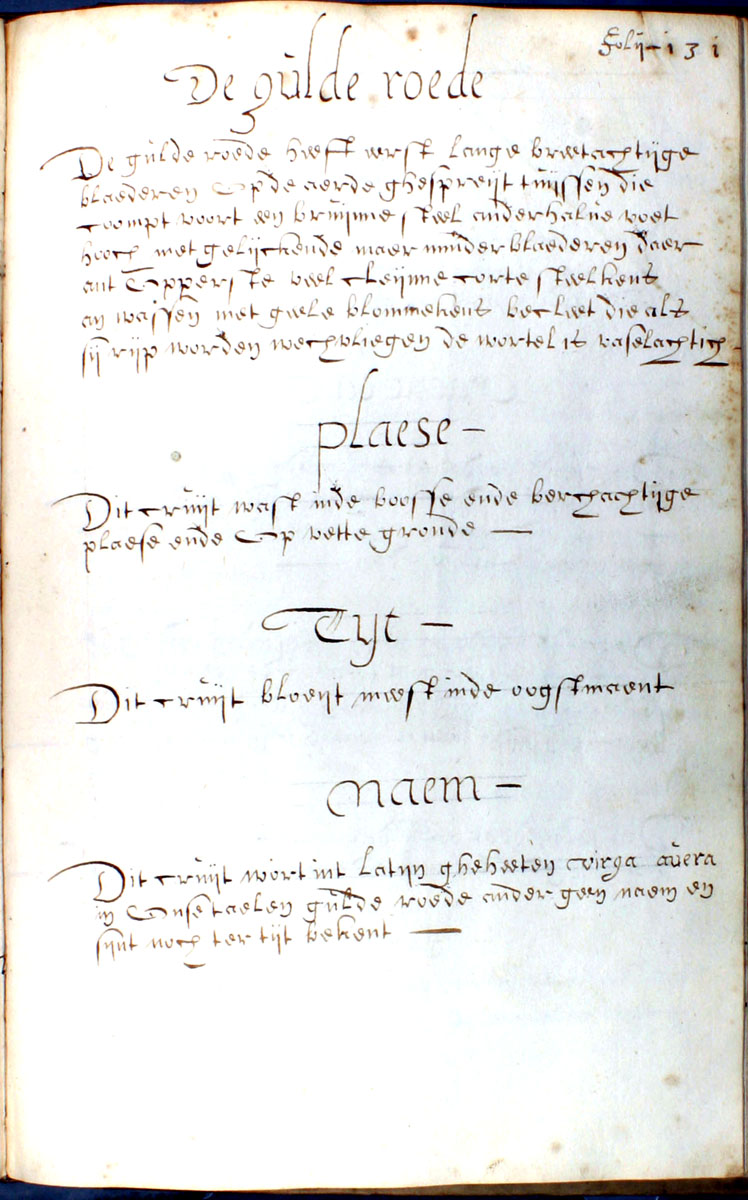 Folij - 131
De gulde roede
De gulde roede heeft eerst lange breetachtijge
blaederen Op de aerde ghespreijt tuissen die
coompt voort een bruijne steel anderhalve voet
hooch met gelijckende maer minder blaederen daer
ant Opperste veel cleijne corte steelkens
an wassen met geele blommekens becleet die als
sij rijp worden wechvliegen de wortel is vaselachtich
plaese -
Dit cruijt wast inde boosse ende berchachtijge
plaese ende Op vette gronde —
Tijt -
Dit cruijt bloeijt meest inde oogstmaent
Naem -
Dit cruijt wort int Latijn gheheeten virga auera
in Onse taelen gulde roede ander geen naem en
sijnt noch ter tijt bekent —